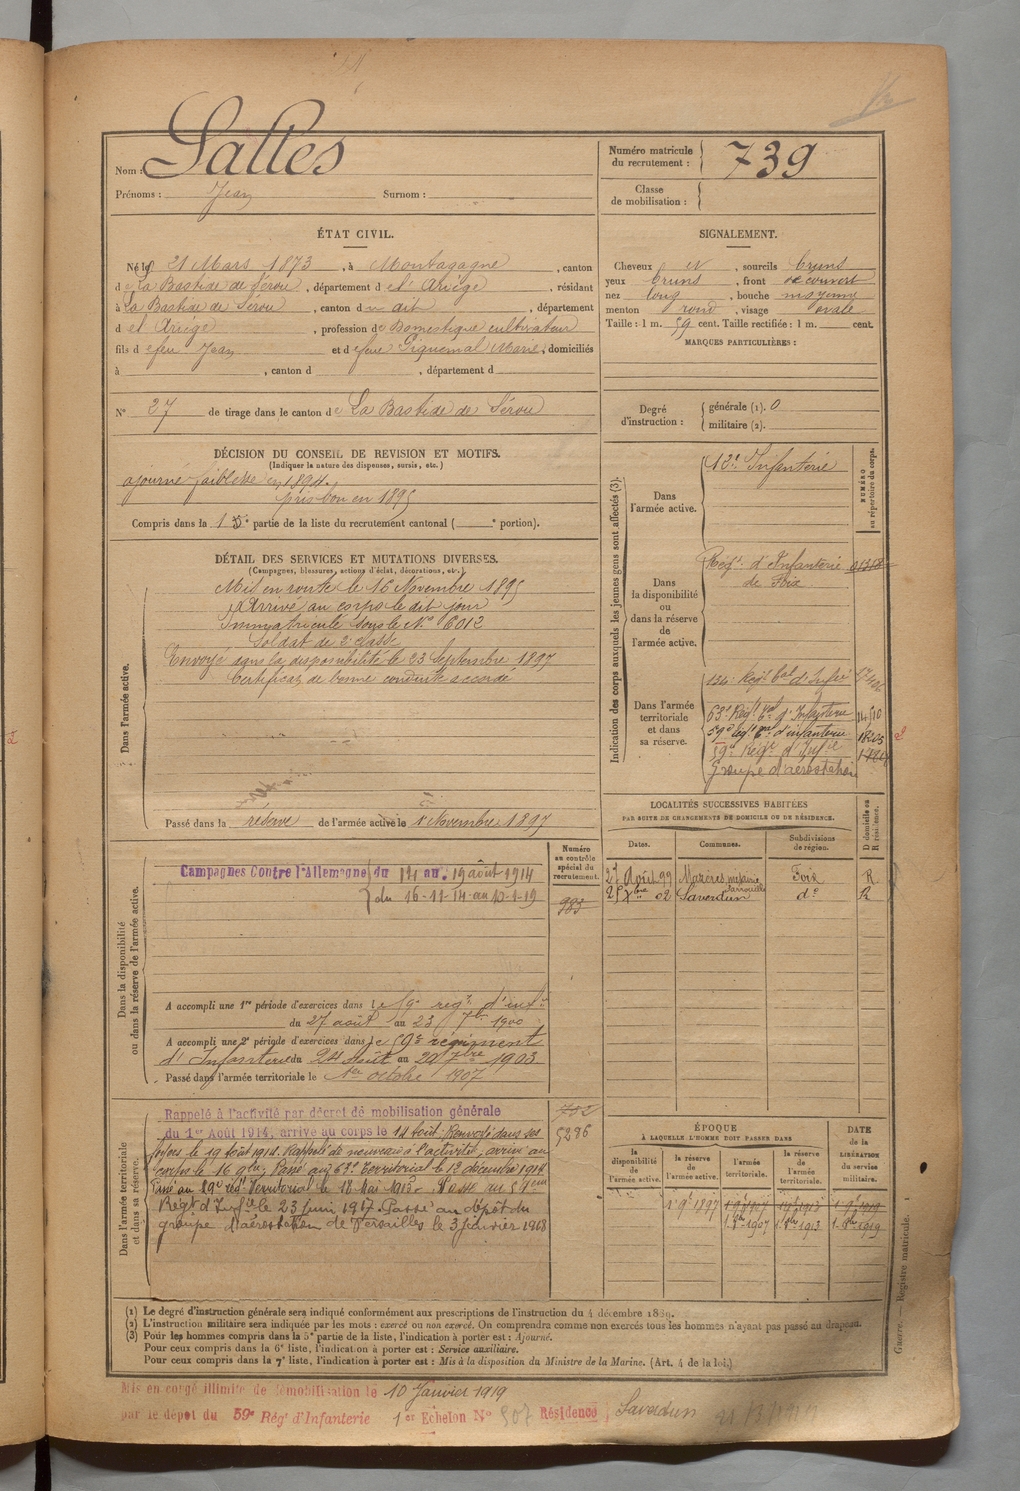 Nom : Salles
Prénoms : Jean Surnom :
Numéro matricule du recrutement : 739
Classe de mobilisation :
ÉTAT CIVIL.
Né le 21 Mars 1873, à Montagagne, canton
de La Bastide de Sérou, département de l'Ariège, résidant
à La Bastide de Sérou, canton du dit, département
d et Ariège, profession de Domestique cultivateur
fils d efeu Jean et d efeue Piquemal Marie, domiciliés
à , canton d , département d
N° 27 de tirage dans le canton de La Bastide de Sérou
SIGNALEMENT.
Cheveux et , sourcils bruns
yeux bruns , front découvert
nez long , bouche moyenne
menton rond , visage ovale
Taille : 1 m. 59 cent. Taille rectifiée : 1 m. cent.
MARQUES PARTICULIÈRES :
Degré d'instruction : générale (1). 0
militaire (2).
DÉCISION DU CONSEIL DE REVISION ET MOTIFS.
(Indiquer la nature des dispenses, sursis, etc.)
ajourné faiblesse en 1894.
pris bon en 1895
Compris dans la 1 partie de la liste du recrutement cantonal ( portion).
DÉTAIL DES SERVICES ET MUTATIONS DIVERSES.
(Campagnes, blessures, actions d'éclat, décorations, etc.)
Dans l'armée active.
Mis en route le 16 Novembre 1895
Arrivé au corps le dit jour
Immatriculé sous le N° 6012
Soldat de 2e classe
Envoyé dans la disponibilité le 23 Septembre 1897
Certificat de bonne conduite accordé
Passé dans la réserve de l'armée active le 1 Novembre 1897
Indication des corps auxquels les jeunes gens sont affectés (3).
NUMÉRO au répertoire du corps.
Dans l'armée active.
Infanterie
Dans la disponibilité ou dans la réserve de l'armée active.
Régt d'Infanterie
de Foix
Dans l'armée territoriale et dans sa réserve.
134e Régt tal d'Infie
63e Régt tal d'Infanterie
59e Régt tal d'infanterie 18205
59e Régt d'Infie
Groupe d'aérostation
LOCALITÉS SUCCESSIVES HABITÉES
PAR SUITE DE CHANGEMENTS DE DOMICILE OU DE RÉSIDENCE.
D domicile ou R résidence.
Dates. Communes. Subdivisions de région.
27 Août 99 Mazères Foix R
25 Xbre 02 Saverdun do R
Dans la disponibilité ou dans la réserve de l'armée active.
Numéro au contrôle spécial du recrutement.
983
Campagnes Contre l'Allemagne du 14 au 19 août 1914
du 16-11-14 au 10-1-19
A accompli une 1re période d'exercices dans le 59e régt d'infie
du 27 août au 23 7bre 1900
A accompli une 2e période d'exercices dans le 59e régiment
d'Infanterie du 24 août au 20 7bre 1903
Passé dans l'armée territoriale le 1er octobre 1907
Dans l'armée territoriale et dans sa réserve.
5286
Rappelé à l'activité par décret de mobilisation générale
du 1er Août 1914, arrivé au corps le 14 août. Renvoyé dans ses
foyers le 19 août 1914. Rappelé de nouveau à l'activité, arrivé au
corps le 16 9bre. Passé au 63e Territorial le 12 décembre 1914
Passé au 59e régt Territorial le 18 Mai 1915. Passé au 59eme
Régt d'Infie le 23 juin 1917. Passé au dépôt du
groupe d'aérostation de Versailles le 3 janvier 1918
ÉPOQUE
À LAQUELLE L'HOMME DOIT PASSER DANS
la disponibilité de l'armée active. la réserve de l'armée active. l'armée territoriale. la réserve de l'armée territoriale. DATE de la LIBÉRATION du service militaire.
1 9e 1897 1 9e 1907 1 9e 1913 1 9e 1919
1 8bre 1907 1 8bre 1913 1 8bre 1919
(1) Le degré d'instruction générale sera indiqué conformément aux prescriptions de l'instruction du 4 décembre 1889.
(2) L'instruction militaire sera indiquée par les mots : exercé ou non exercé. On comprendra comme non exercés tous les hommes n'ayant pas passé au drapeau.
(3) Pour les hommes compris dans la 5e partie de la liste, l'indication à porter est : Ajourné.
Pour ceux compris dans la 6e liste, l'indication à porter est : Service auxiliaire.
Pour ceux compris dans la 7e liste, l'indication à porter est : Mis à la disposition du Ministre de la Marine. (Art. 4 de la loi.)
Guerre. — Registre matricule. 1
Mis en congé illimité de démobilisation le 10 Janvier 1919
par le dépôt du 59e Régt d'Infanterie 1er Echelon N° 507 Résidence Saverdun